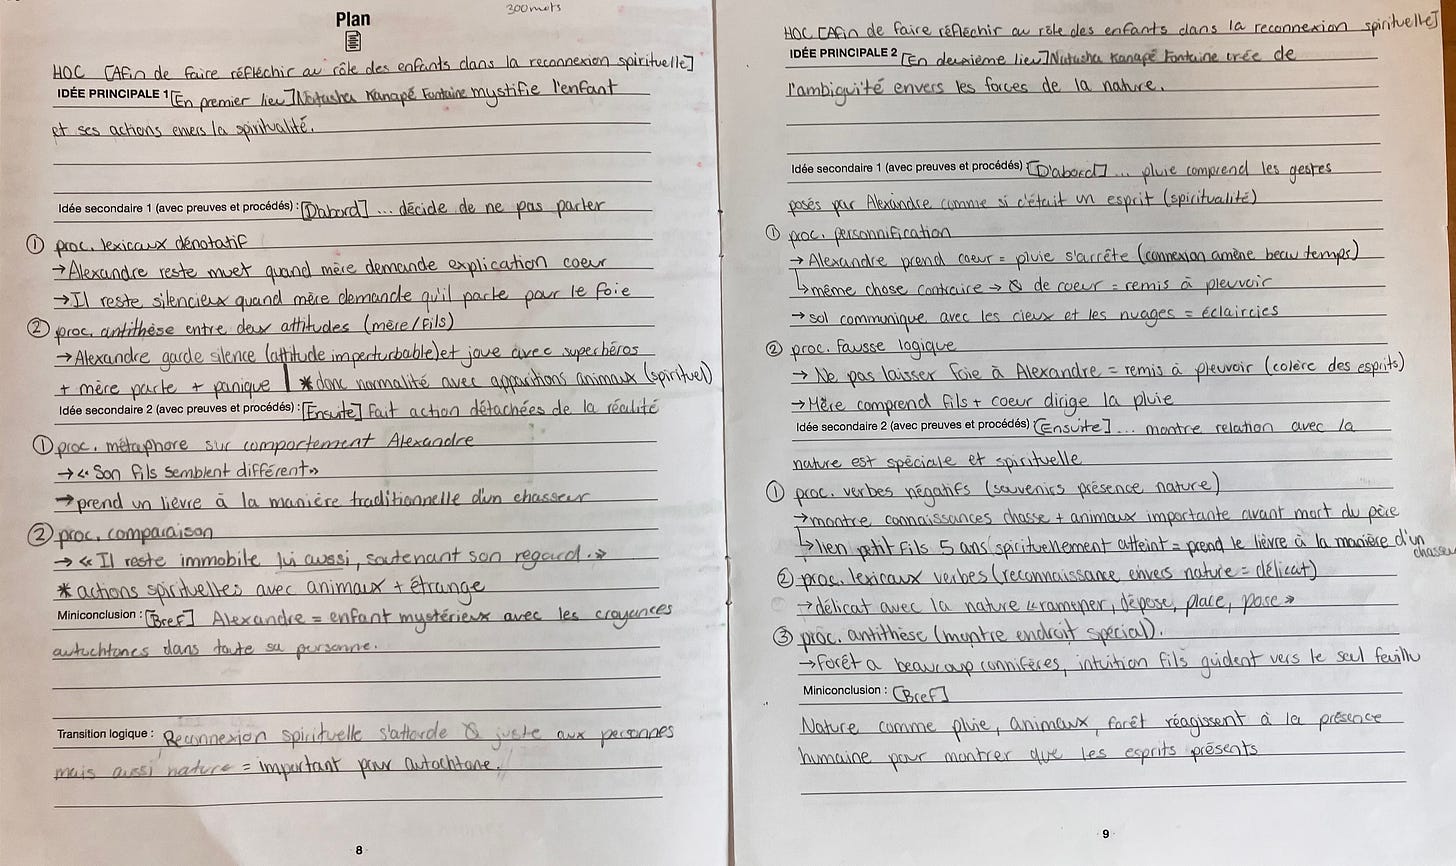 300 mots
Plan
HOC [Afin de faire réfléchir au rôle des enfants dans la reconnexion spirituelle]
IDÉE PRINCIPALE 1 [En premier lieu] Natasha Kanapé Fontaine mystifie l'enfant
et ses actions envers la spiritualité.
Idée secondaire 1 (avec preuves et procédés) : [D'abord] ... décide de ne pas parler
① proc. lexicaux dénotatif
→ Alexandre reste muet quand mère demande explication coeur
→ Il reste silencieux quand mère demande qu'il parle pour le foie
② proc. antithèse entre deux attitudes (mère/fils)
→ Alexandre garde silence (attitude imperturbable) et joue avec superhéros
+ mère parle + panique | * donc normalité avec apparitions animaux (spirituel)
Idée secondaire 2 (avec preuves et procédés) : [Ensuite] fait action détachées de la réalité
① proc. métaphore sur comportement Alexandre
→ « Son fils semblent différent »
→ prend un lièvre à la manière traditionnelle d'un chasseur
② proc. comparaison
→ « Il reste immobile lui aussi, soutenant son regard. »
* actions spirituelles avec animaux + étrange
Miniconclusion : [Bref] Alexandre = enfant mystérieux avec les croyances
autochtones dans toute sa personne.
Transition logique : Reconnexion spirituelle s'attarde juste aux personnes
mais aussi nature = important pour autochtone.
8
HOC [Afin de faire réfléchir au rôle des enfants dans la reconnexion spirituelle]
IDÉE PRINCIPALE 2 [En deuxième lieu] Natasha Kanapé Fontaine crée de
l'ambiguïté envers les forces de la nature.
Idée secondaire 1 (avec preuves et procédés) : [D'abord] ... pluie comprend les gestes
posés par Alexandre comme si c'était un esprit (spiritualité)
① proc. personnification
→ Alexandre prend coeur = pluie s'arrête (connexion amène beau temps)
↳ même chose contraire → de coeur = remis à pleuvoir
→ sol communique avec les cieux et les nuages = éclaircies
② proc. fausse logique
→ Ne pas laisser foie à Alexandre = remis à pleuvoir (colère des esprits)
→ Mère comprend fils + coeur dirige la pluie
Idée secondaire 2 (avec preuves et procédés) [Ensuite] ... montre relation avec la
nature est spéciale et spirituelle
① proc. verbes négatifs (souvenirs présence nature)
→ montre connaissances chasse + animaux importante avant mort du père
↳ lien petit fils 5 ans (spirituellement atteint = prend le lièvre à la manière d'un chasseur
② proc. lexicaux verbes (reconnaissance envers nature = délicat)
→ délicat avec la nature « ramener, dépose, place, pose »
③ proc. antithèse (montre endroit spécial).
→ forêt a beaucoup connifères, intuition fils guident vers le seul feuillu
Miniconclusion : [Bref]
Nature comme pluie, animaux, forêt réagissent à la présence
humaine pour montrer que les esprits présents
9